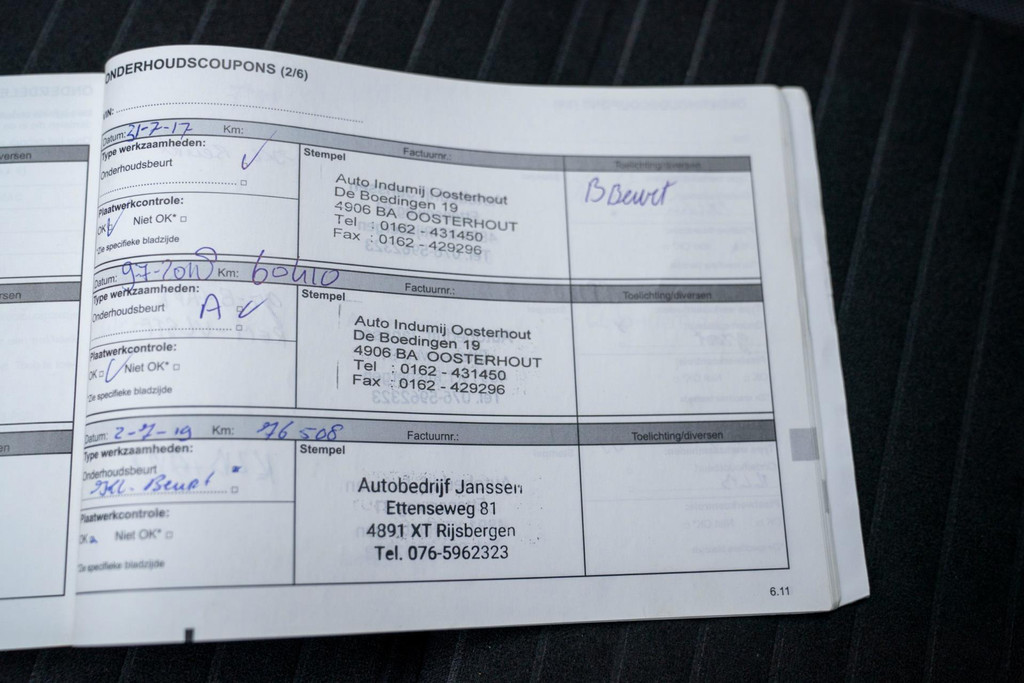 ONDERHOUDSCOUPONS (2/6)
VIN:
Datum: 31-7-17 Km:
Type werkzaamheden:
Onderhoudsbeurt
Plaatwerkcontrole:
OK Niet OK*
*Zie specifieke bladzijde
Stempel Factuurnr.:
Auto Indumij Oosterhout
De Boedingen 19
4906 BA OOSTERHOUT
Tel : 0162 - 431450
Fax : 0162 - 429296
Toelichting/diversen
B Beurt
Datum: 9-7-2018 Km: 60410
Type werkzaamheden:
Onderhoudsbeurt A
Plaatwerkcontrole:
OK Niet OK*
*Zie specifieke bladzijde
Stempel Factuurnr.:
Auto Indumij Oosterhout
De Boedingen 19
4906 BA OOSTERHOUT
Tel : 0162 - 431450
Fax : 0162 - 429296
Toelichting/diversen
Datum: 2-7-19 Km: 76508
Type werkzaamheden:
Onderhoudsbeurt
Beurt
Plaatwerkcontrole:
OK Niet OK*
*Zie specifieke bladzijde
Stempel Factuurnr.:
Autobedrijf Janssen
Ettenseweg 81
4891 XT Rijsbergen
Tel. 076-5962323
Toelichting/diversen
6.11